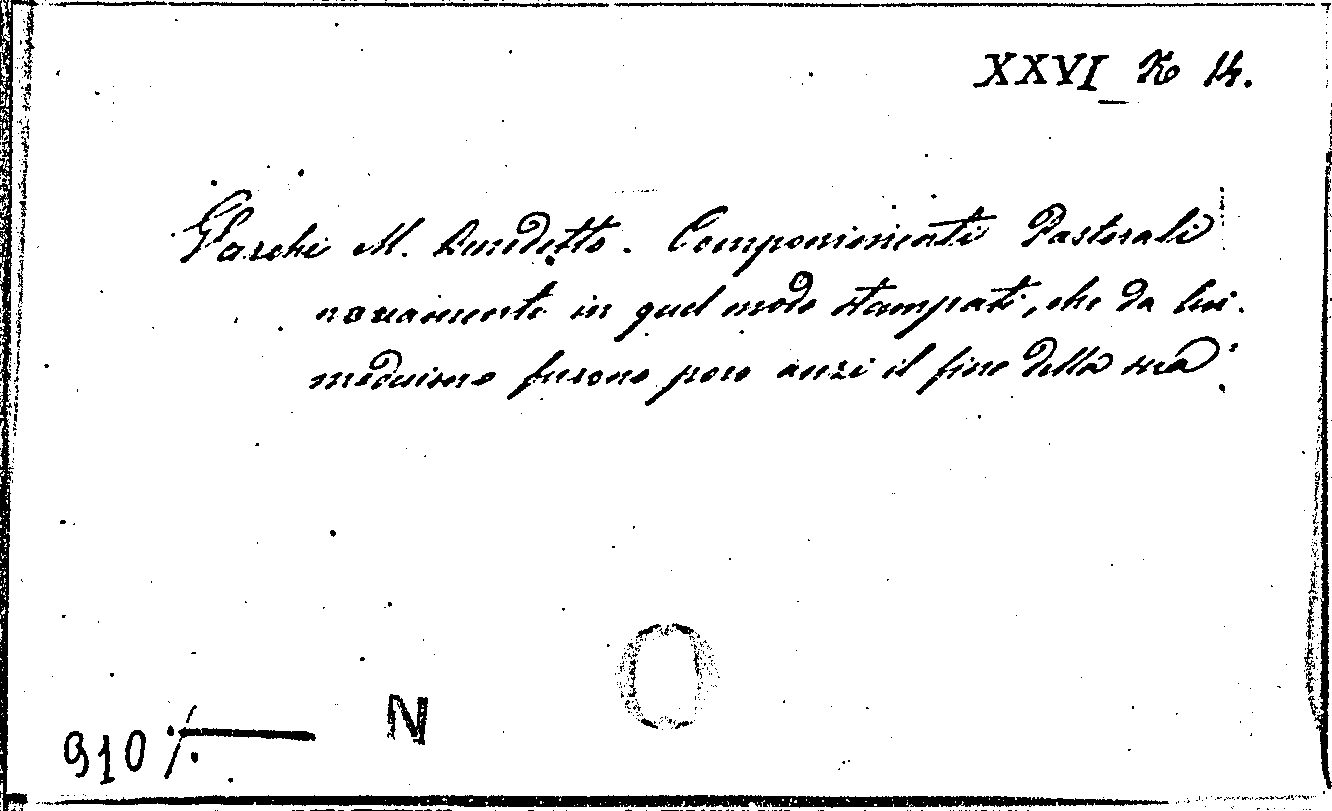 XXVI_K 14.
Varchi M. Benedetto. Componimenti Pastorali
novamente in quel modo stampati, che da lui
medesimo furono poco anzi il fine della sua
910 ·/. N